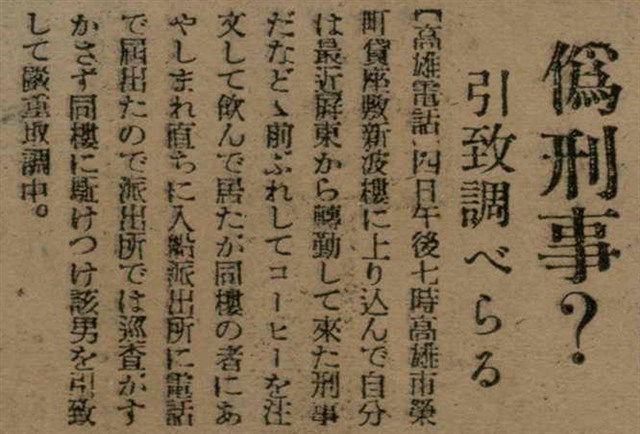 偽刑事？
引致調べらる
【高雄電話】四日午後七時高雄市榮
町貸座敷新波樓に上り込んで自分
は最近屏東から轉勤して來た刑事
だなどゝ前ぶれしてコーヒーを注
文して飲んで居たが同樓の者にあ
やしまれ直ちに入船派出所に電話
で屆出たので派出所では巡査がす
かさず同樓に駈けつけ該男を引致
して嚴重取調中。